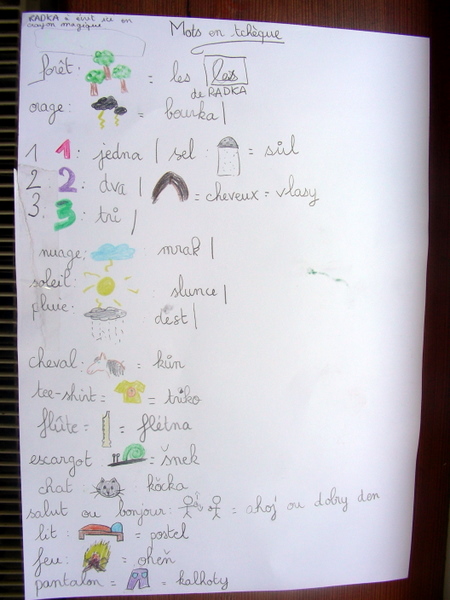 RADKA a écrit ici en
crayon magique
Mots en tchèque
forêt: = les les
de RADKA
orage: = bourka
1 1 jedna sel: = sůl
2. 2 dva = cheveux = vlasy
3. 3 tři
nuage: mrak
soleil: slunce
pluie: dest
cheval: = kůn
tee-shirt = = triko
flûte: = flétna
escargot = šnek
chat: kočka
salut ou bonjour: = ahoj ou dobry den
lit: = postel
feu: = oheň
pantalon = = kalhoty